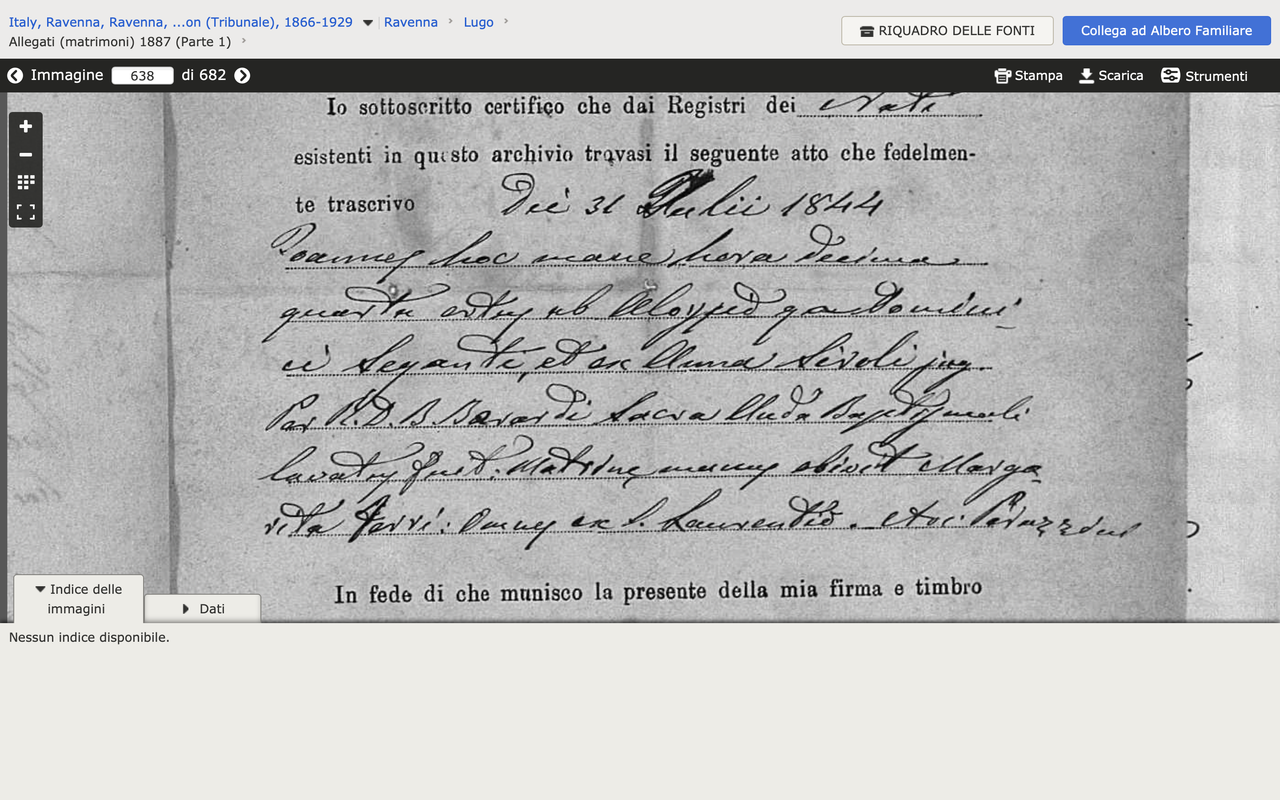 Italy, Ravenna, Ravenna, ...on (Tribunale), 1866-1929 Ravenna Lugo
Allegati (matrimoni) 1887 (Parte 1)
RIQUADRO DELLE FONTI
Collega ad Albero Familiare
Immagine 638 di 682
Stampa Scarica Strumenti
Io sottoscritto certifico che dai Registri dei Nati
esistenti in questo archivio trovasi il seguente atto che fedelmen-
te trascrivo Die 31 Julii 1844
Joannes hoc mane hora decima
quarta ortus ab Aloysio q.am Domini-
ci Seganti, et ex Anna Sivoli jug.
Per R. D. B. Berardi Sacra Unda Baptismali
lavatus fuit. Matrine munus obivit Marga-
rita Ferri: Omnes ex S. Laurentio.
In fede di che munisco la presente della mia firma e timbro
Indice delle
immagini
Dati
Nessun indice disponibile.